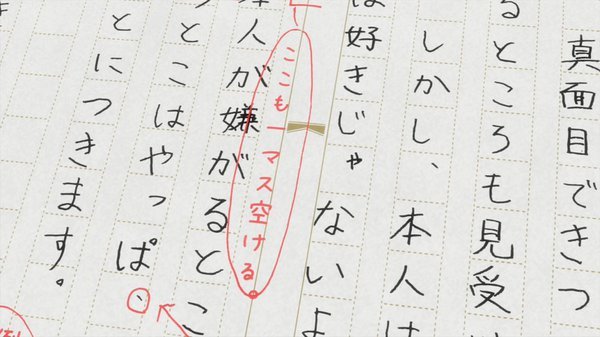 真面目できつ
るところも見受
しかし、本人は
は好きじゃないよ
ここも一マス空ける
本人が嫌がるとこ
とこはやっぱ、
とにつきます。